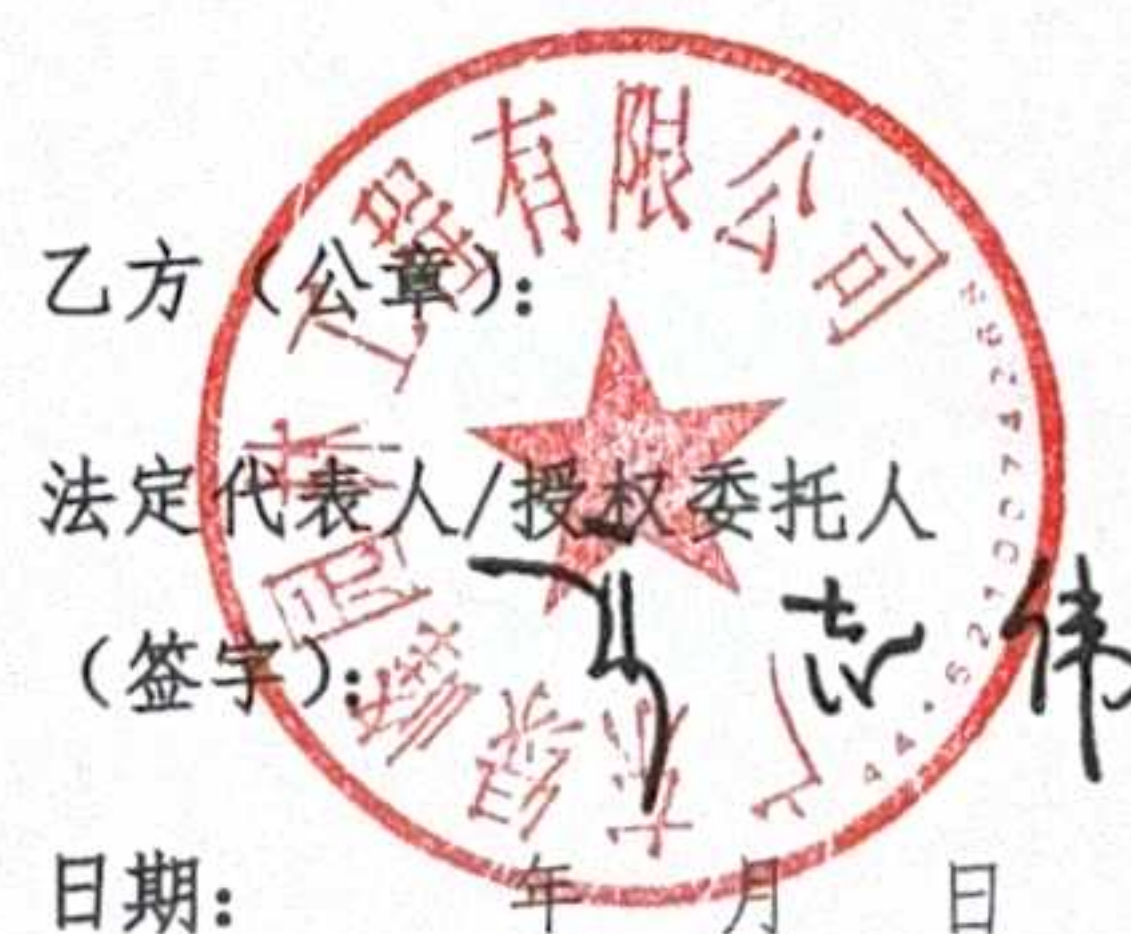 乙方（公章）：
法定代表人/授权委托人
（签字）：
志伟
日期： 年 月 日
工程有限公司